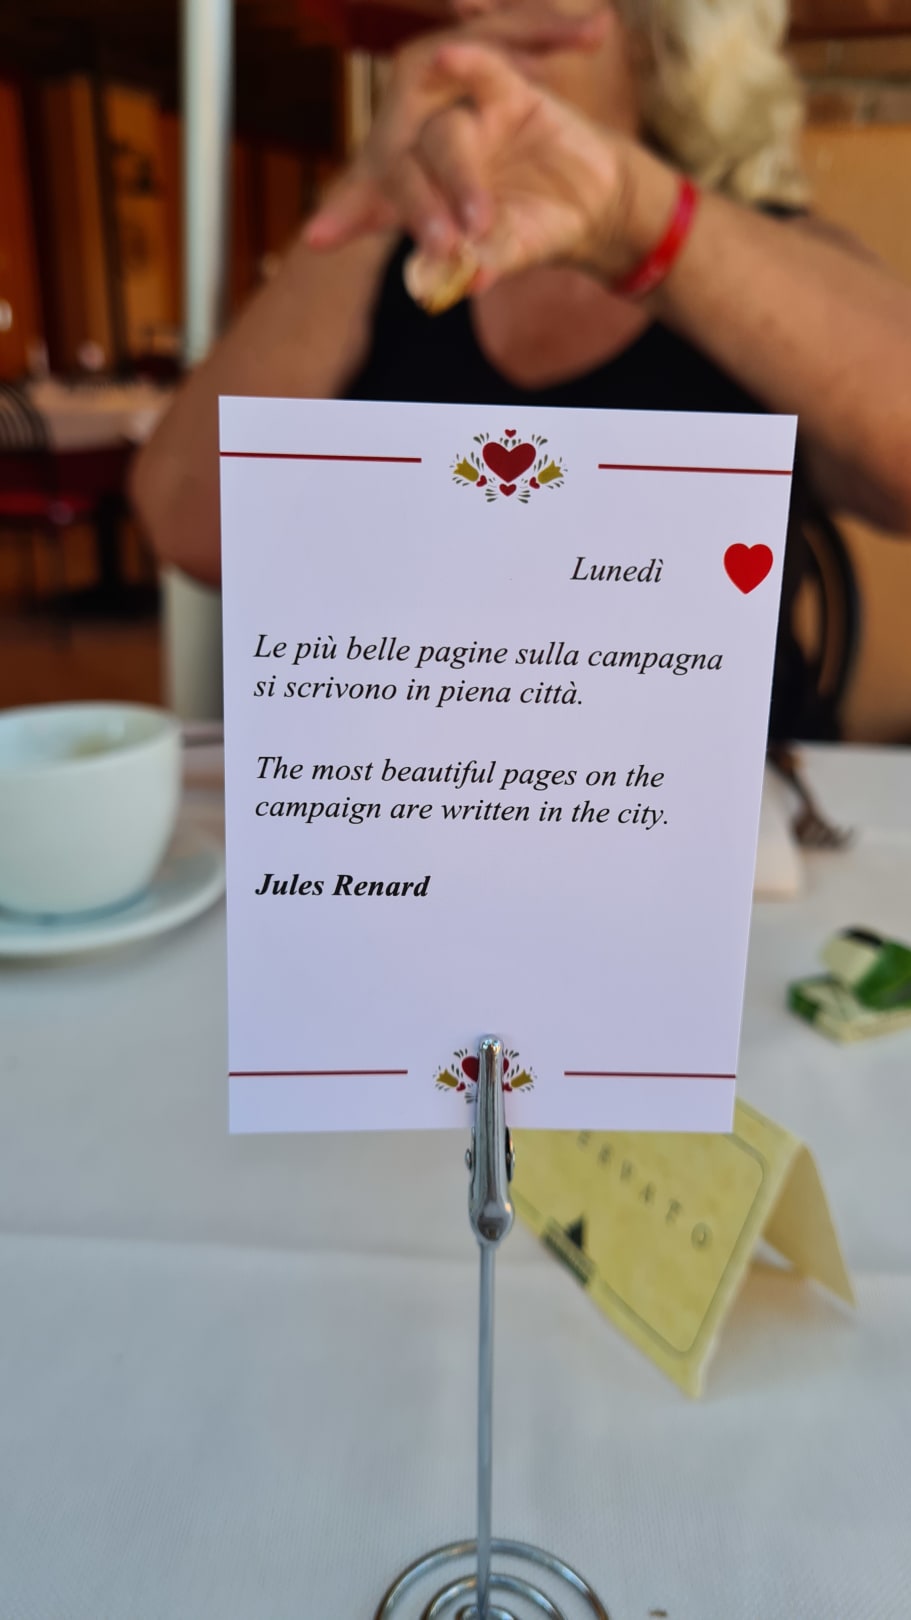 Lunedì
Le più belle pagine sulla campagna
si scrivono in piena città.
The most beautiful pages on the
campaign are written in the city.
Jules Renard